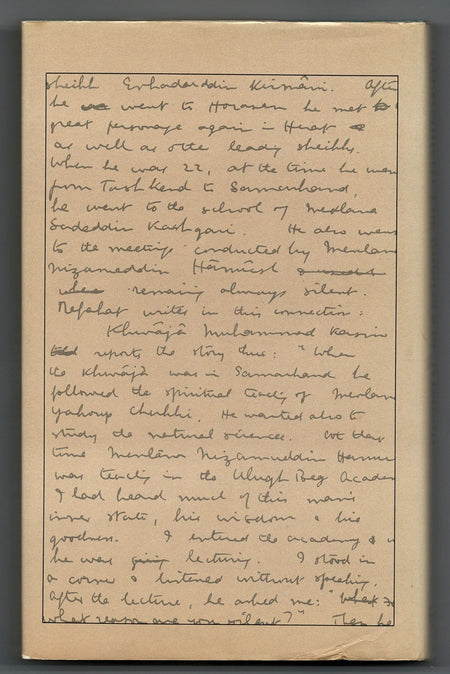 sheikh Evhadaddin Kirmâni. After
he went to Horasan he met
great personage again in Herat
as well as other leading sheikhs.
When he was 22, at the time he went
from Tashkend to Samarkand,
he went to the school of Mevlana
Sadeddin Kashgari. He also went
to the meetings conducted by Mevlan
Nizameddin Hâmûsh
remaining always silent.
Refahat writes in this connection:
Khwâjâ Muhammad Kassim
reports the story thus: "When
the Khwâjâ was in Samarkand he
followed the spiritual teaching of Mevlan
Yakoup Cherkhi. He wanted also to
study the natural sciences. At that
time Mevlâna Nizamuddin Hamu
was teaching in the Ulugh Beg Academ
I had heard much of this man's
inner state, his wisdom & his
goodness. I entered the academy &
he was giving lecturing. I stood in
a corner & listened without speaking.
After the lecture, he asked me: "What
what reason are you silent?" Then he